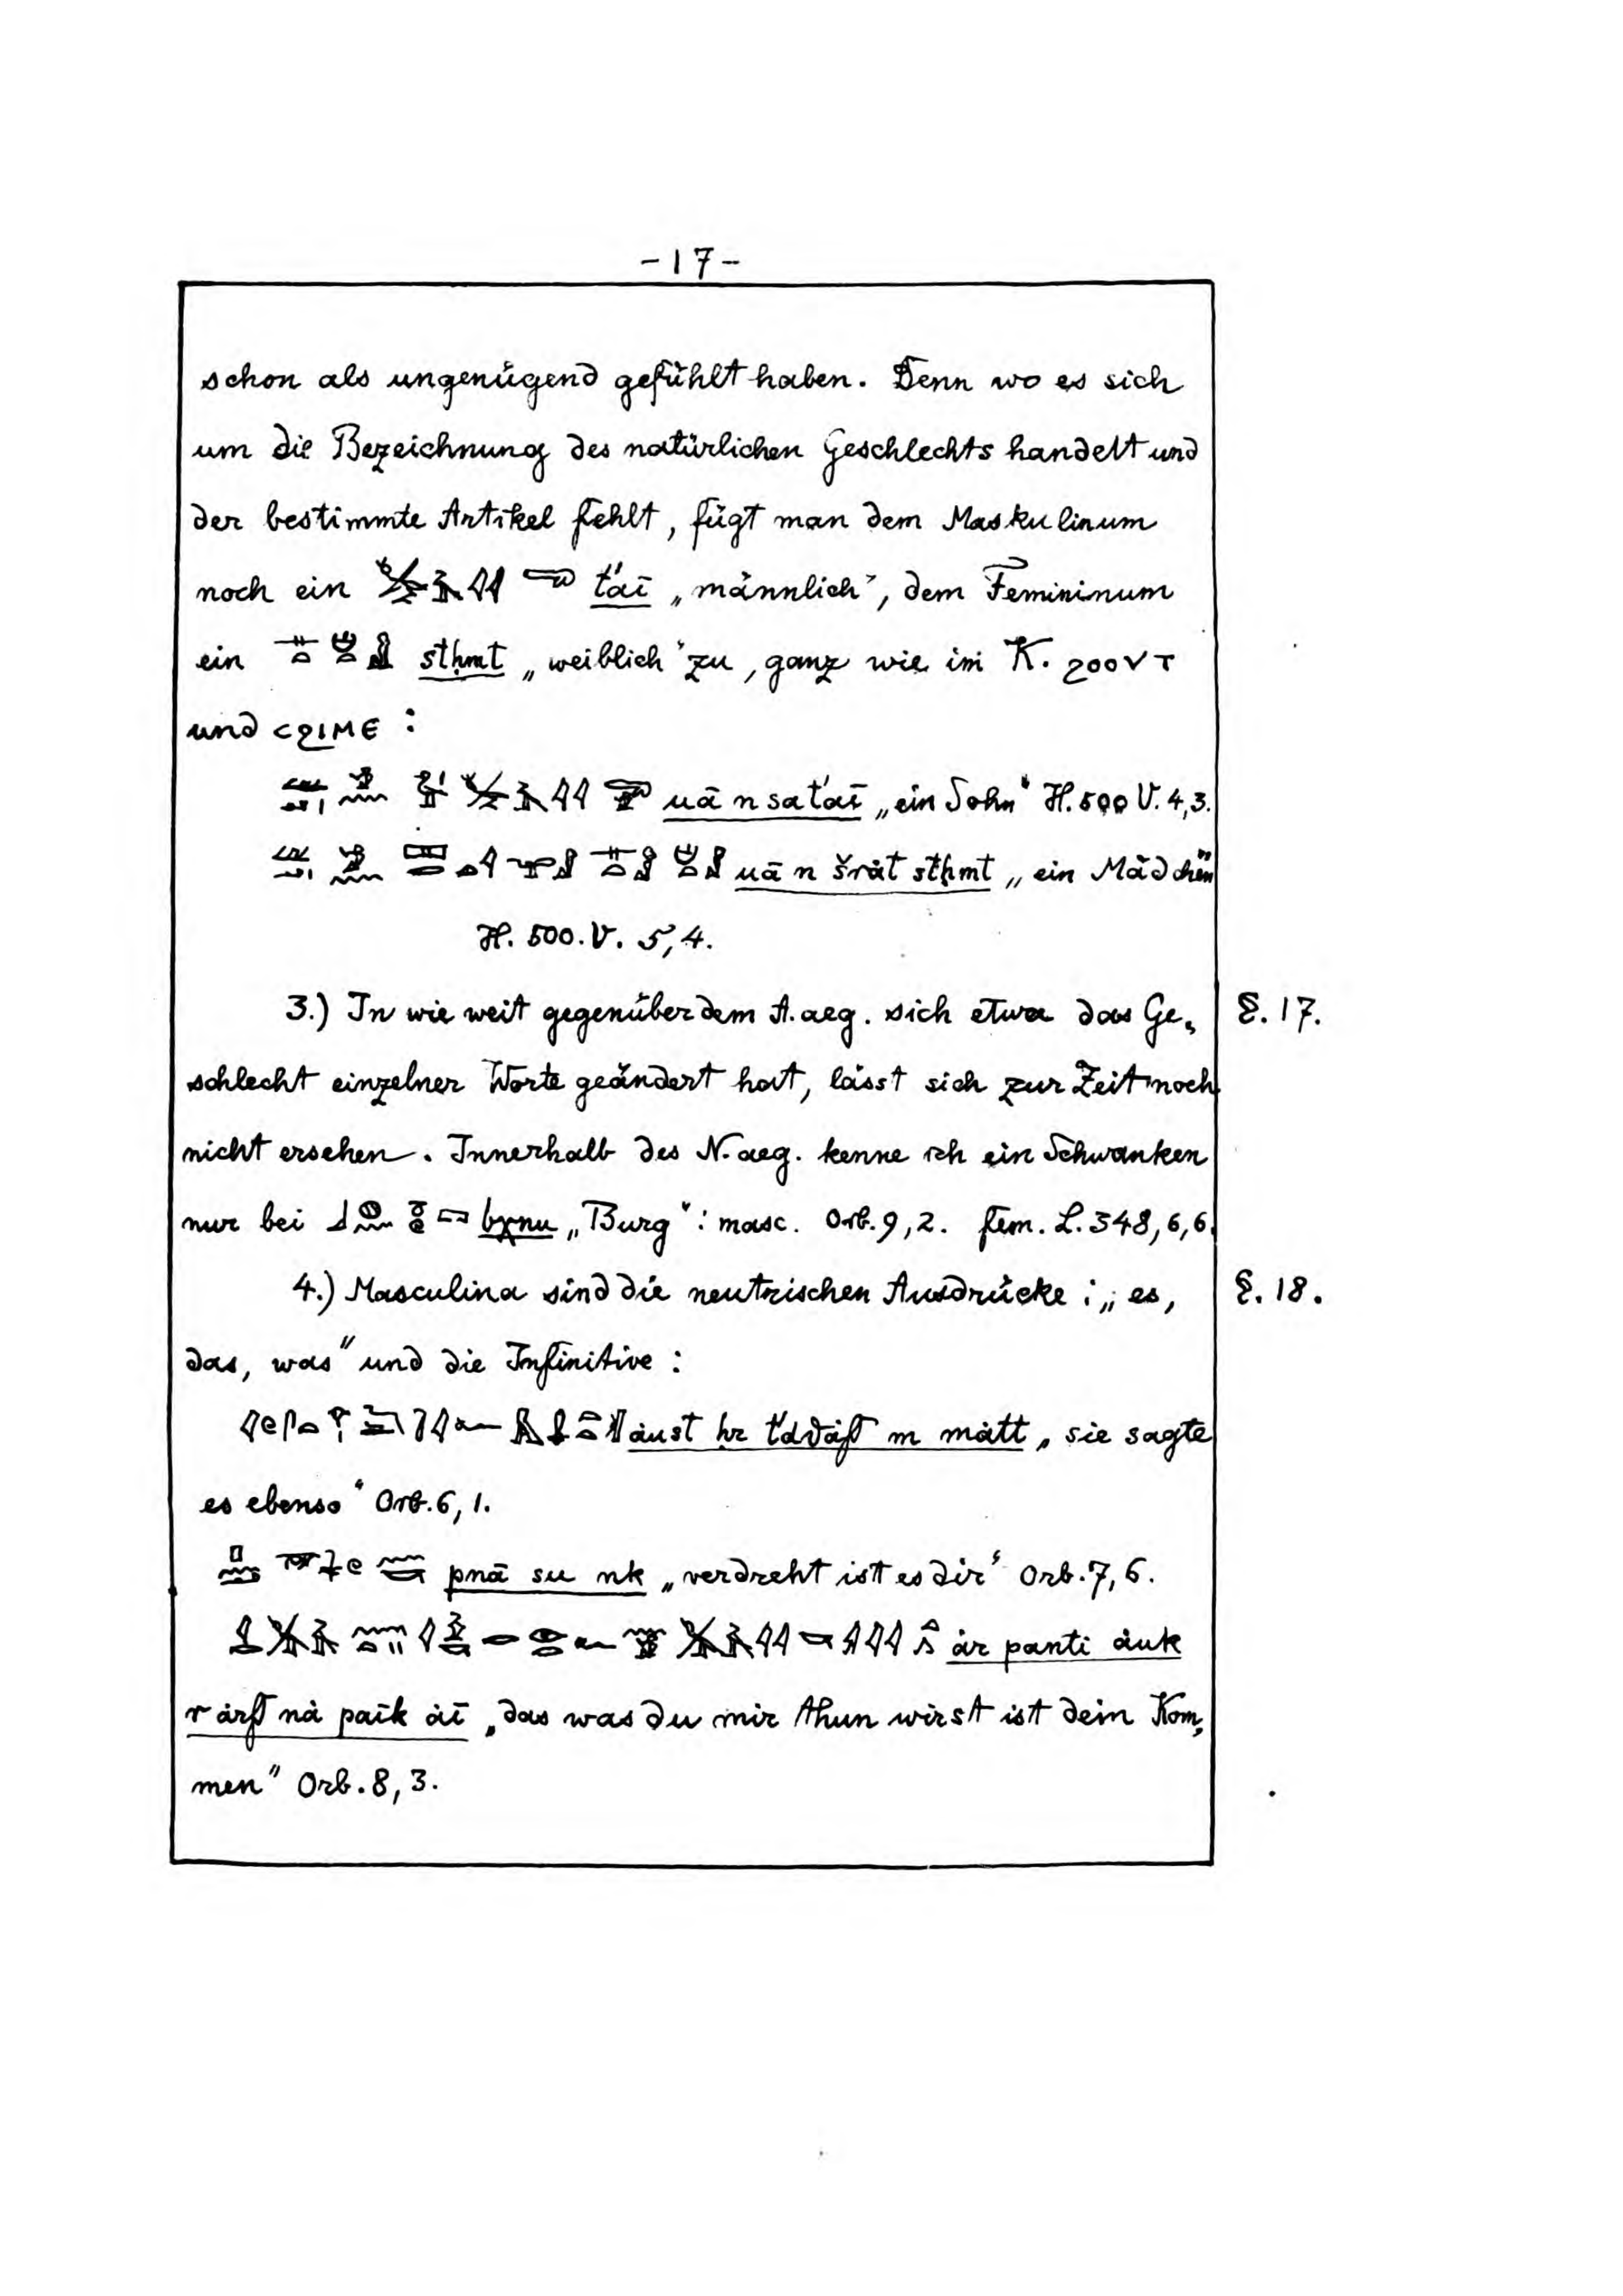 -17-
schon als ungenügend gefühlt haben. Denn wo es sich
um die Bezeichnung des natürlichen Geschlechts handelt und
der bestimmte Artikel fehlt, fügt man dem Maskulinum
noch ein t'aī „männlich“, dem Femininum
ein stḥmt „weiblich“ zu, ganz wie im K. ϩⲟⲟⲩⲧ
und ⲥϩⲓⲙⲉ :
uā n sat'aī „ein Sohn“ H. 500 V. 4,3.
uā n šrȧt stḥmt „ein Mädchen“
H. 500. V. 5,4.
3.) In wie weit gegenüber dem A.aeg. sich etwa das Ge- §. 17.
schlecht einzelner Worte geändert hat, lässt sich zur Zeit noch
nicht ersehen. Innerhalb des N.aeg. kenne ich ein Schwanken
nur bei bχnu „Burg“: masc. Orb. 9,2. fem. L. 348,6,6.
4.) Masculina sind die neutrischen Ausdrücke : „es, §. 18.
das, was“ und die Infinitive :
ȧust ḥr m mȧtt „sie sagte
es ebenso“ Orb. 6,1.
pnā su nk „verdreht ist es dir“ Orb. 7,6.
ȧr panti ȧuk
r ȧrf nȧ paīk ȧī „das was du mir thun wirst ist dein Kom-
men“ Orb. 8,3.